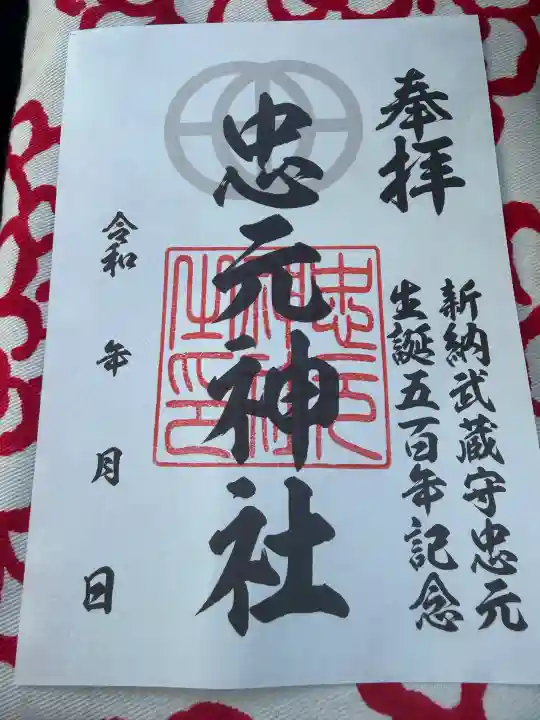 奉拝
新納武蔵守忠元
生誕五百年記念
忠元神社
忠元
神社
之印
令和 年 月 日